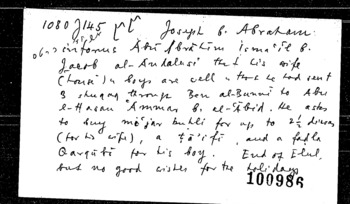 1080 J145 Joseph b. Abraham:
informs Abū Ibrāhīm Ismaʿīl b.
Jacob al-Andalusī that his wife
(house) & boys are well & that he had sent
3 through Ben al- to Abu
'l-Hasan ʿAmmār b. al-ʿĀbid. He asks
to buy miʿjar buhlī for up to 2½ dinars
(for his wife), a ṭāʾifī, and a faḍla
Qarqūbī for his boy. End of Elul,
but no good wishes for the holidays
100986